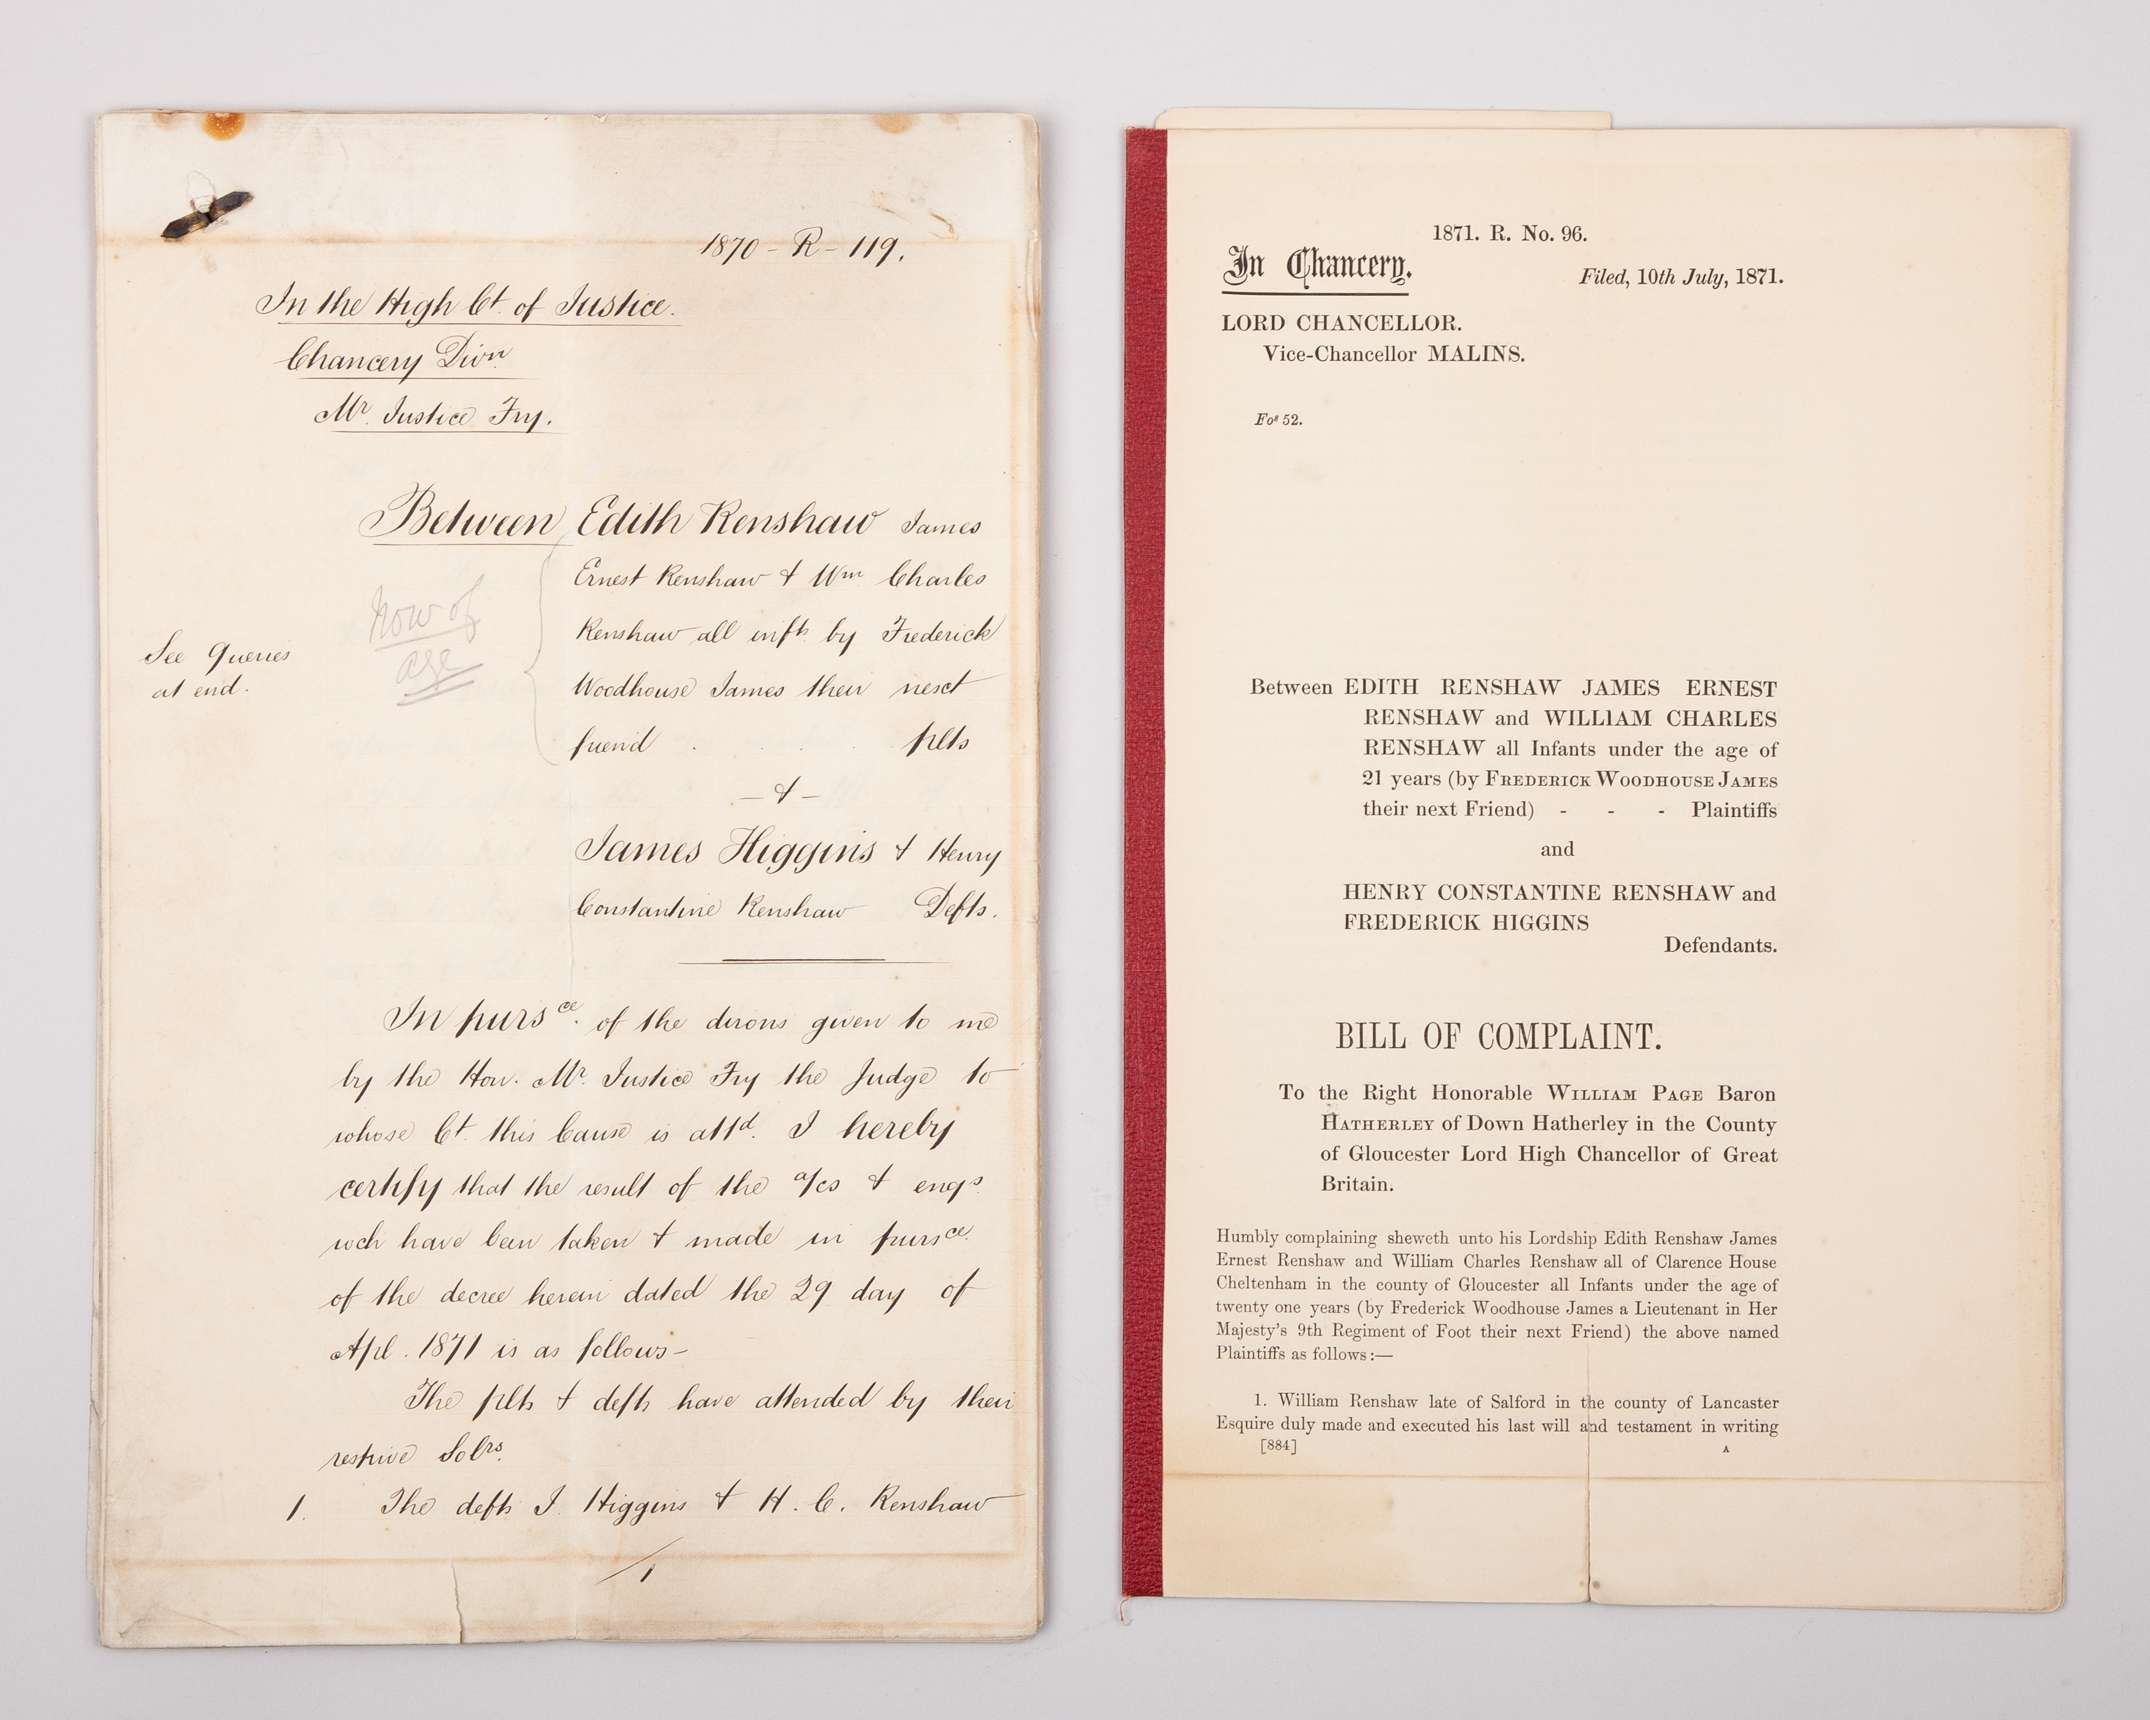 1870 - R - 119.
In the High Ct. of Justice.
Chancery Divn.
Mr. Justice Fry.
Between Edith Renshaw James
Ernest Renshaw & Wm Charles
Renshaw all infts. by Frederick
Woodhouse James their next
friend . . . . plts
now of
age
See queries
at end.
- & -
James Higgins & Henry
Constantine Renshaw Defts.
In pursce. of the dirons given to me
by the Hon. Mr. Justice Fry the Judge to
whose Ct. this Cause is attd. I hereby
certify that the result of the a/cs & enqs.
wch have been taken & made in pursce.
of the decree herein dated the 29 day of
Apl. 1871 is as follows-
The plts & defts have attended by their
respive Solrs.
1. The defts J. Higgins & H. C. Renshaw
/1
1871. R. No. 96.
In Chancery.
Filed, 10th July, 1871.
LORD CHANCELLOR.
Vice-Chancellor MALINS.
Fos 52.
Between EDITH RENSHAW JAMES ERNEST
RENSHAW and WILL1AM CHARLES
RENSHAW all Infants under the age of
21 years (by FREDERICK WOODHOUSE JAMES
their next Friend) - - - Plaintiffs
and
HENRY CONSTANTINE RENSHAW and
FREDERICK HIGGINS
Defendants.
BILL OF COMPLAINT.
To the Right Honorable WILLIAM PAGE Baron
HATHERLEY of Down Hatherley in the County
of Gloucester Lord High Chancellor of Great
Britain.
Humbly complaining sheweth unto his Lordship Edith Renshaw James
Ernest Renshaw and William Charles Renshaw all of Clarence House
Cheltenham in the county of Gloucester all Infants under the age of
twenty one years (by Frederick Woodhouse James a Lieutenant in Her
Majesty's 9th Regiment of Foot their next Friend) the above named
Plaintiffs as follows:—
1. William Renshaw late of Salford in the county of Lancaster
Esquire duly made and executed his last will and testament in writing
[884] A